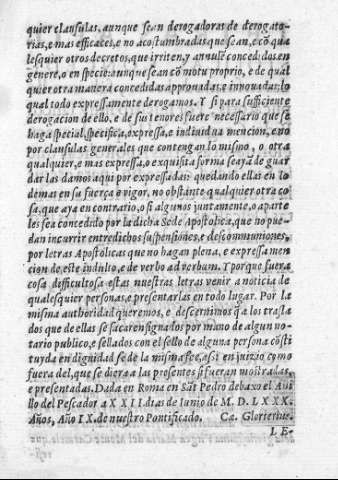 quier clausulas, aunque sean derogadoras de derogato-
rias, e mas efficaces, e no acostumbradas que sean, e cõ qua
lesquier otros decretos, que irriten, y annulẽ concedidos en
genere, o en specie: aunque sean cõ motu proprio, e de qual
quier otra manera concedidas approuadas, e innouadas: lo
qual todo expressamente derogamos. Y si para sufficiente
derogacion de ello, e de sus tenores fuere necessario que se
haga special, specifica, expressa, e indiuidua mencion, e no
por clausulas generales que contengan lo mismo, o otra
qualquier, e mas expressa, o exquisita forma se aya de guar
dar las damos aqui por expressadas: quedando ellas en lo
demas en su fuerça e vigor, no obstante qualquier otra co
sa, que aya en contrario, o si algunos juntamente, o aparte
les sea concedido por la dicha Sede Apostolica, que no pue-
dan incurrir entredichos suspensiones, e descomuniones,
por letras Apostolicas que no hagan plena, e expressa men
cion de este indulto, e de verbo ad verbum. Y porque fuera
cosa difficultosa estas nuestras letras venir a noticia de
qualesquier personas, e presentarlas en todo lugar. Por la
misma authoridad queremos, e descernimos q̃ a los trasla
dos que de ellas se sacaren signados por mano de algun no-
tario publico, e sellados con el sello de alguna persona cõsti
tuyda en dignidad se de la misma fee, assi en juizio como
fuera del, que se diera a las presentes si fueran mostradas,
e presentadas. Dada en Roma en Sãt Pedro debaxo el Ani
llo del Pescador a XXII. dias de Iunio de M. D. LXXX.
Años, Año IX. de nuestro Pontificado. Ca. Glorierius.
L E-